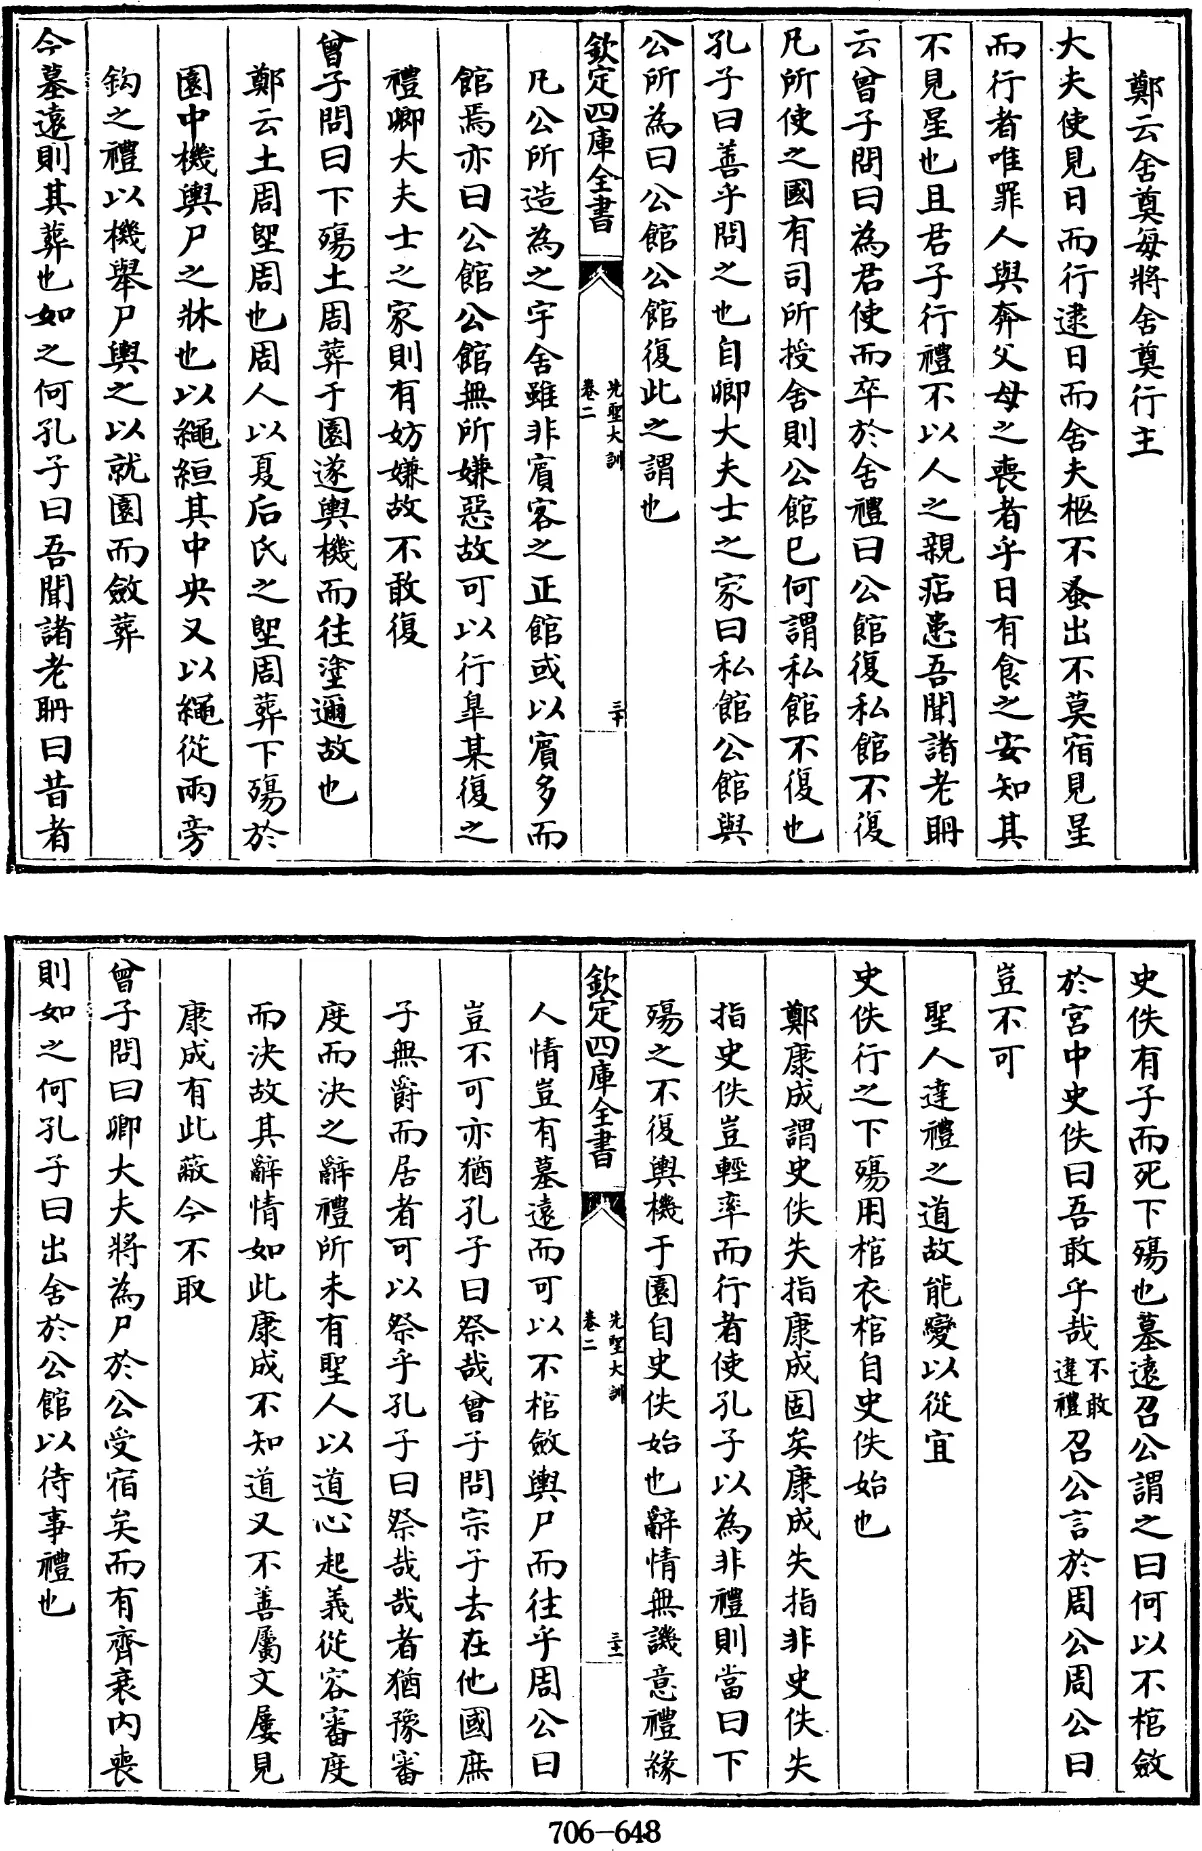 鄭云舍奠每將舍奠行主
大夫使見日而行逮日而舍夫柩不蚤出不莫宿見星
而行者唯罪人與奔父母之喪者乎日有食之安知其
不見星也且君子行禮不以人之親痁患吾聞諸老耼
云曾子問曰為君使而卒於舍禮曰公館復私館不復
凡所使之國有司所授舍則公館已何謂私館不復也
孔子曰善乎問之也自卿大夫士之家曰私館公館與
公所為曰公館公館復此之謂也
欽定四庫全書
先聖大訓
卷二
三十
凡公所造為之宇舍雖非賓客之正館或以賓多而
館焉亦曰公館公館無所嫌惡故可以行皐某復之
禮卿大夫士之家則有妨嫌故不敢復
曾子問曰下殤土周葬于園遂輿機而往塗邇故也
鄭云土周堲周也周人以夏后氏之堲周葬下殤於
園中機輿尸之牀也以繩絙其中央又以繩從兩旁
鈎之禮以機舉尸輿之以就園而斂葬
今墓遠則其葬也如之何孔子曰吾聞諸老耼曰昔者
史佚有子而死下殤也墓遠召公謂之曰何以不棺斂
於宮中史佚曰吾敢乎哉不敢違禮召公言於周公周公曰
豈不可
聖人達禮之道故能變以從宜
史佚行之下殤用棺衣棺自史佚始也
鄭康成謂史佚失指康成固矣康成失指非史佚失
指史佚豈輕率而行者使孔子以為非禮則當曰下
殤之不復輿機于園自史佚始也辭情無譏意禮緣
欽定四庫全書
先聖大訓
卷二
三十一
人情豈有墓遠而可以不棺斂輿尸而往乎周公曰
豈不可亦猶孔子曰祭哉曾子問宗子去在他國庶
子無爵而居者可以祭乎孔子曰祭哉哉者猶豫審
度而決之辭禮所未有聖人以道心起義從容審度
而決故其辭情如此康成不知道又不善屬文屢見
康成有此蔽今不取
曾子問曰卿大夫將為尸於公受宿矣而有齊衰內喪
則如之何孔子曰出舍於公館以待事禮也
706-648